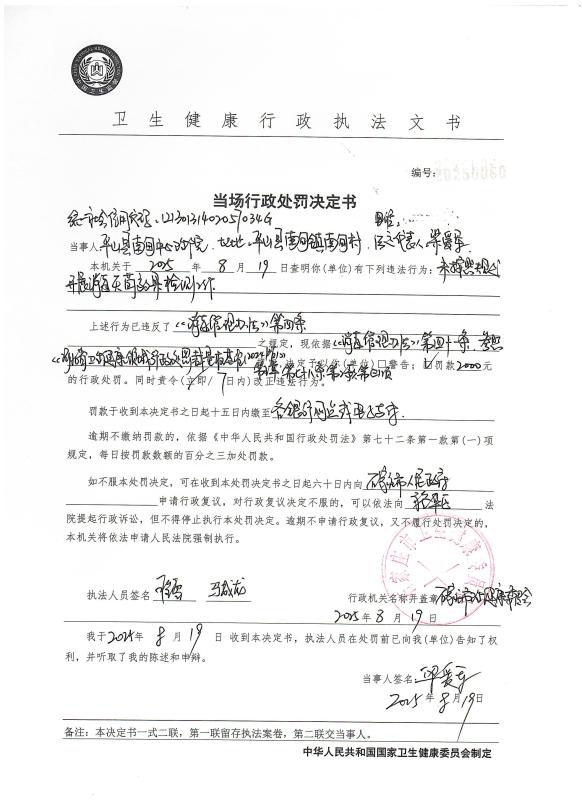 卫生健康行政执法文书
编号：
当场行政处罚决定书
统一社会信用代码：12130131402057034G
当事人平山县南甸中心卫生院 地址：平山县南甸镇南甸村 法定代表人
本机关于 2025 年 8 月 19 日查明你（单位）有下列违法行为：未按照规定
开展消毒灭菌效果检测工作
上述行为已违反了《消毒管理办法》第四条
之规定，现依据《消毒管理办法》第四十一条
决定予以你（单位）□警告；☑罚款2000元
的行政处罚。同时责令（立即/7日内）改正违法行为。
罚款于收到本决定书之日起十五日内缴至各银行网点或电子支付
逾期不缴纳罚款的，依据《中华人民共和国行政处罚法》第七十二条第一款第（一）项
规定，每日按罚款数额的百分之三加处罚款。
如不服本处罚决定，可在收到本处罚决定书之日起六十日内向石家庄市人民政府
申请行政复议，对行政复议决定不服的，可以依法向 法
院提起行政诉讼，但不得停止执行本处罚决定。逾期不申请行政复议，又不履行处罚决定的，
本机关将依法申请人民法院强制执行。
执法人员签名
行政机关名称并盖章 石家庄市卫生健康委员会
2025 年 8 月 19 日
我于2025年 8 月 19 日 收到本决定书，执法人员在处罚前已向我（单位）告知了权
利，并听取了我的陈述和申辩。
当事人签名
2025年8月19日
备注：本决定书一式二联，第一联留存执法案卷，第二联交当事人。
中华人民共和国国家卫生健康委员会制定